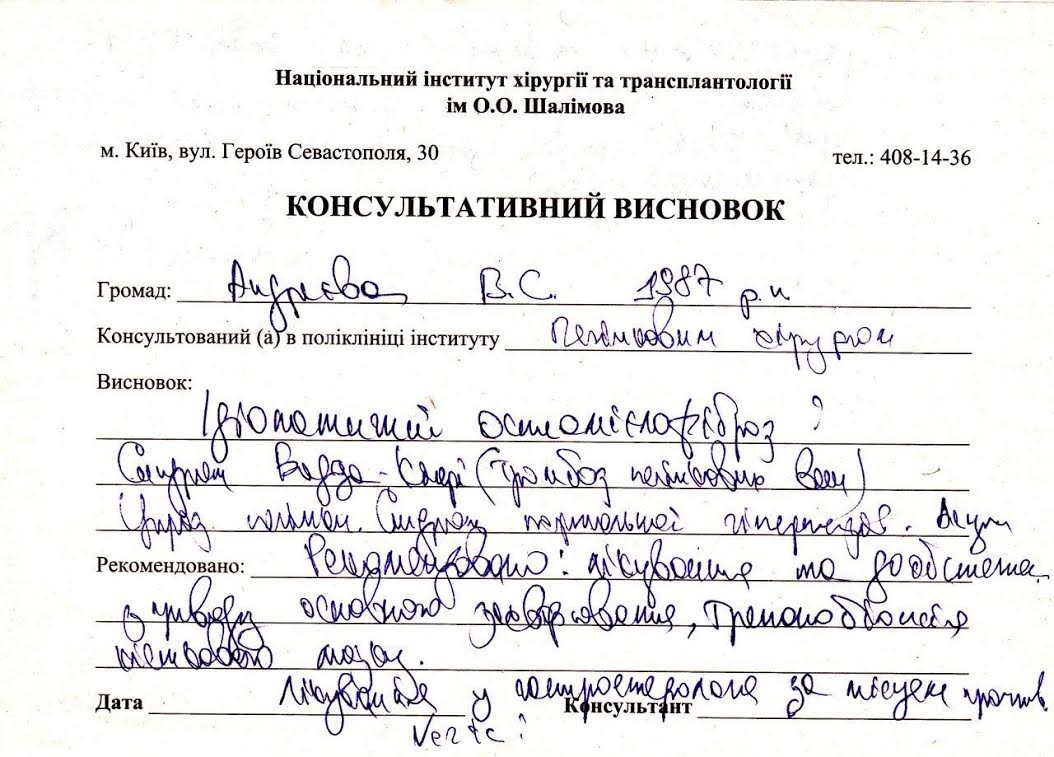 Національний інститут хірургії та трансплантології
ім О.О. Шалімова
м. Київ, вул. Героїв Севастополя, 30
тел.: 408-14-36
КОНСУЛЬТАТИВНИЙ ВИСНОВОК
Громад: Андрєєва В.С. 1987 р.н
Консультований (а) в поліклініці інституту Печінковим хірургом
Висновок:
Ідіопатичний остеомієлофіброз ?
Синдром Бадда-Кіарі (тромбоз печінкових вен)
Цироз печінки. Синдром портальної гіпертензії. Асцит
Рекомендовано: Рекомендовано: лікування та дообстеження
з приводу основного захворювання, Трепанобіопсія
кісткового мозку.
Лікування у гастроентеролога за місцем прожив.
Дата
Консультант